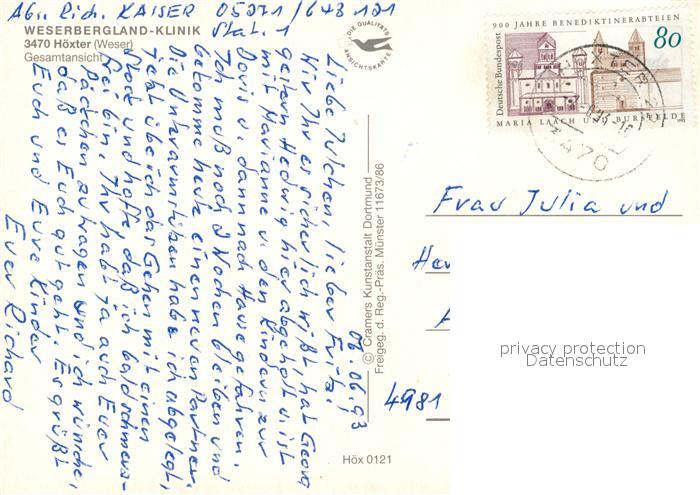 Abn. Rich. KAISER 05271/643 181
Stat. 1
WESERBERGLAND-KLINIK
3470 Höxter (Weser)
Gesamtansicht
DIE QUALITÄTS
ANSICHTSKARTE
06.06.93
Liebe Julchen, lieber Fritz!
Wir Ihr es sicherlich wißt, hat Georg
gestern Hedwig hier abgeholt u. ist
mit Marianne u. den Kindern zur
Doris u. dann nach Hause gefahren.
Ich muß noch 2 Wochen bleiben und
bekomme heute einen neuen Partner.
Die Unterarmstützen habe ich abgelegt,
jetzt übe ich das Gehen mit einen
Stock und hoffe, daß ich bald schmerz-
frei bin. Ihr habt ja auch Euer
Päckchen zu tragen und ich wünsche,
daß es Euch gut geht. Es grüßt
Euch und Eure Kinder
Euer Richard
© Cramers Kunstanstalt Dortmund
Freigeg. d. Reg.-Präs. Münster 11673/86
Höx 0121
Deutsche Bundespost
900 JAHRE BENEDIKTINERABTEIEN
80
MARIA LAACH UND BURSFELDE
1993
3470
Frau Julia und
4981
privacy protection
Datenschutz